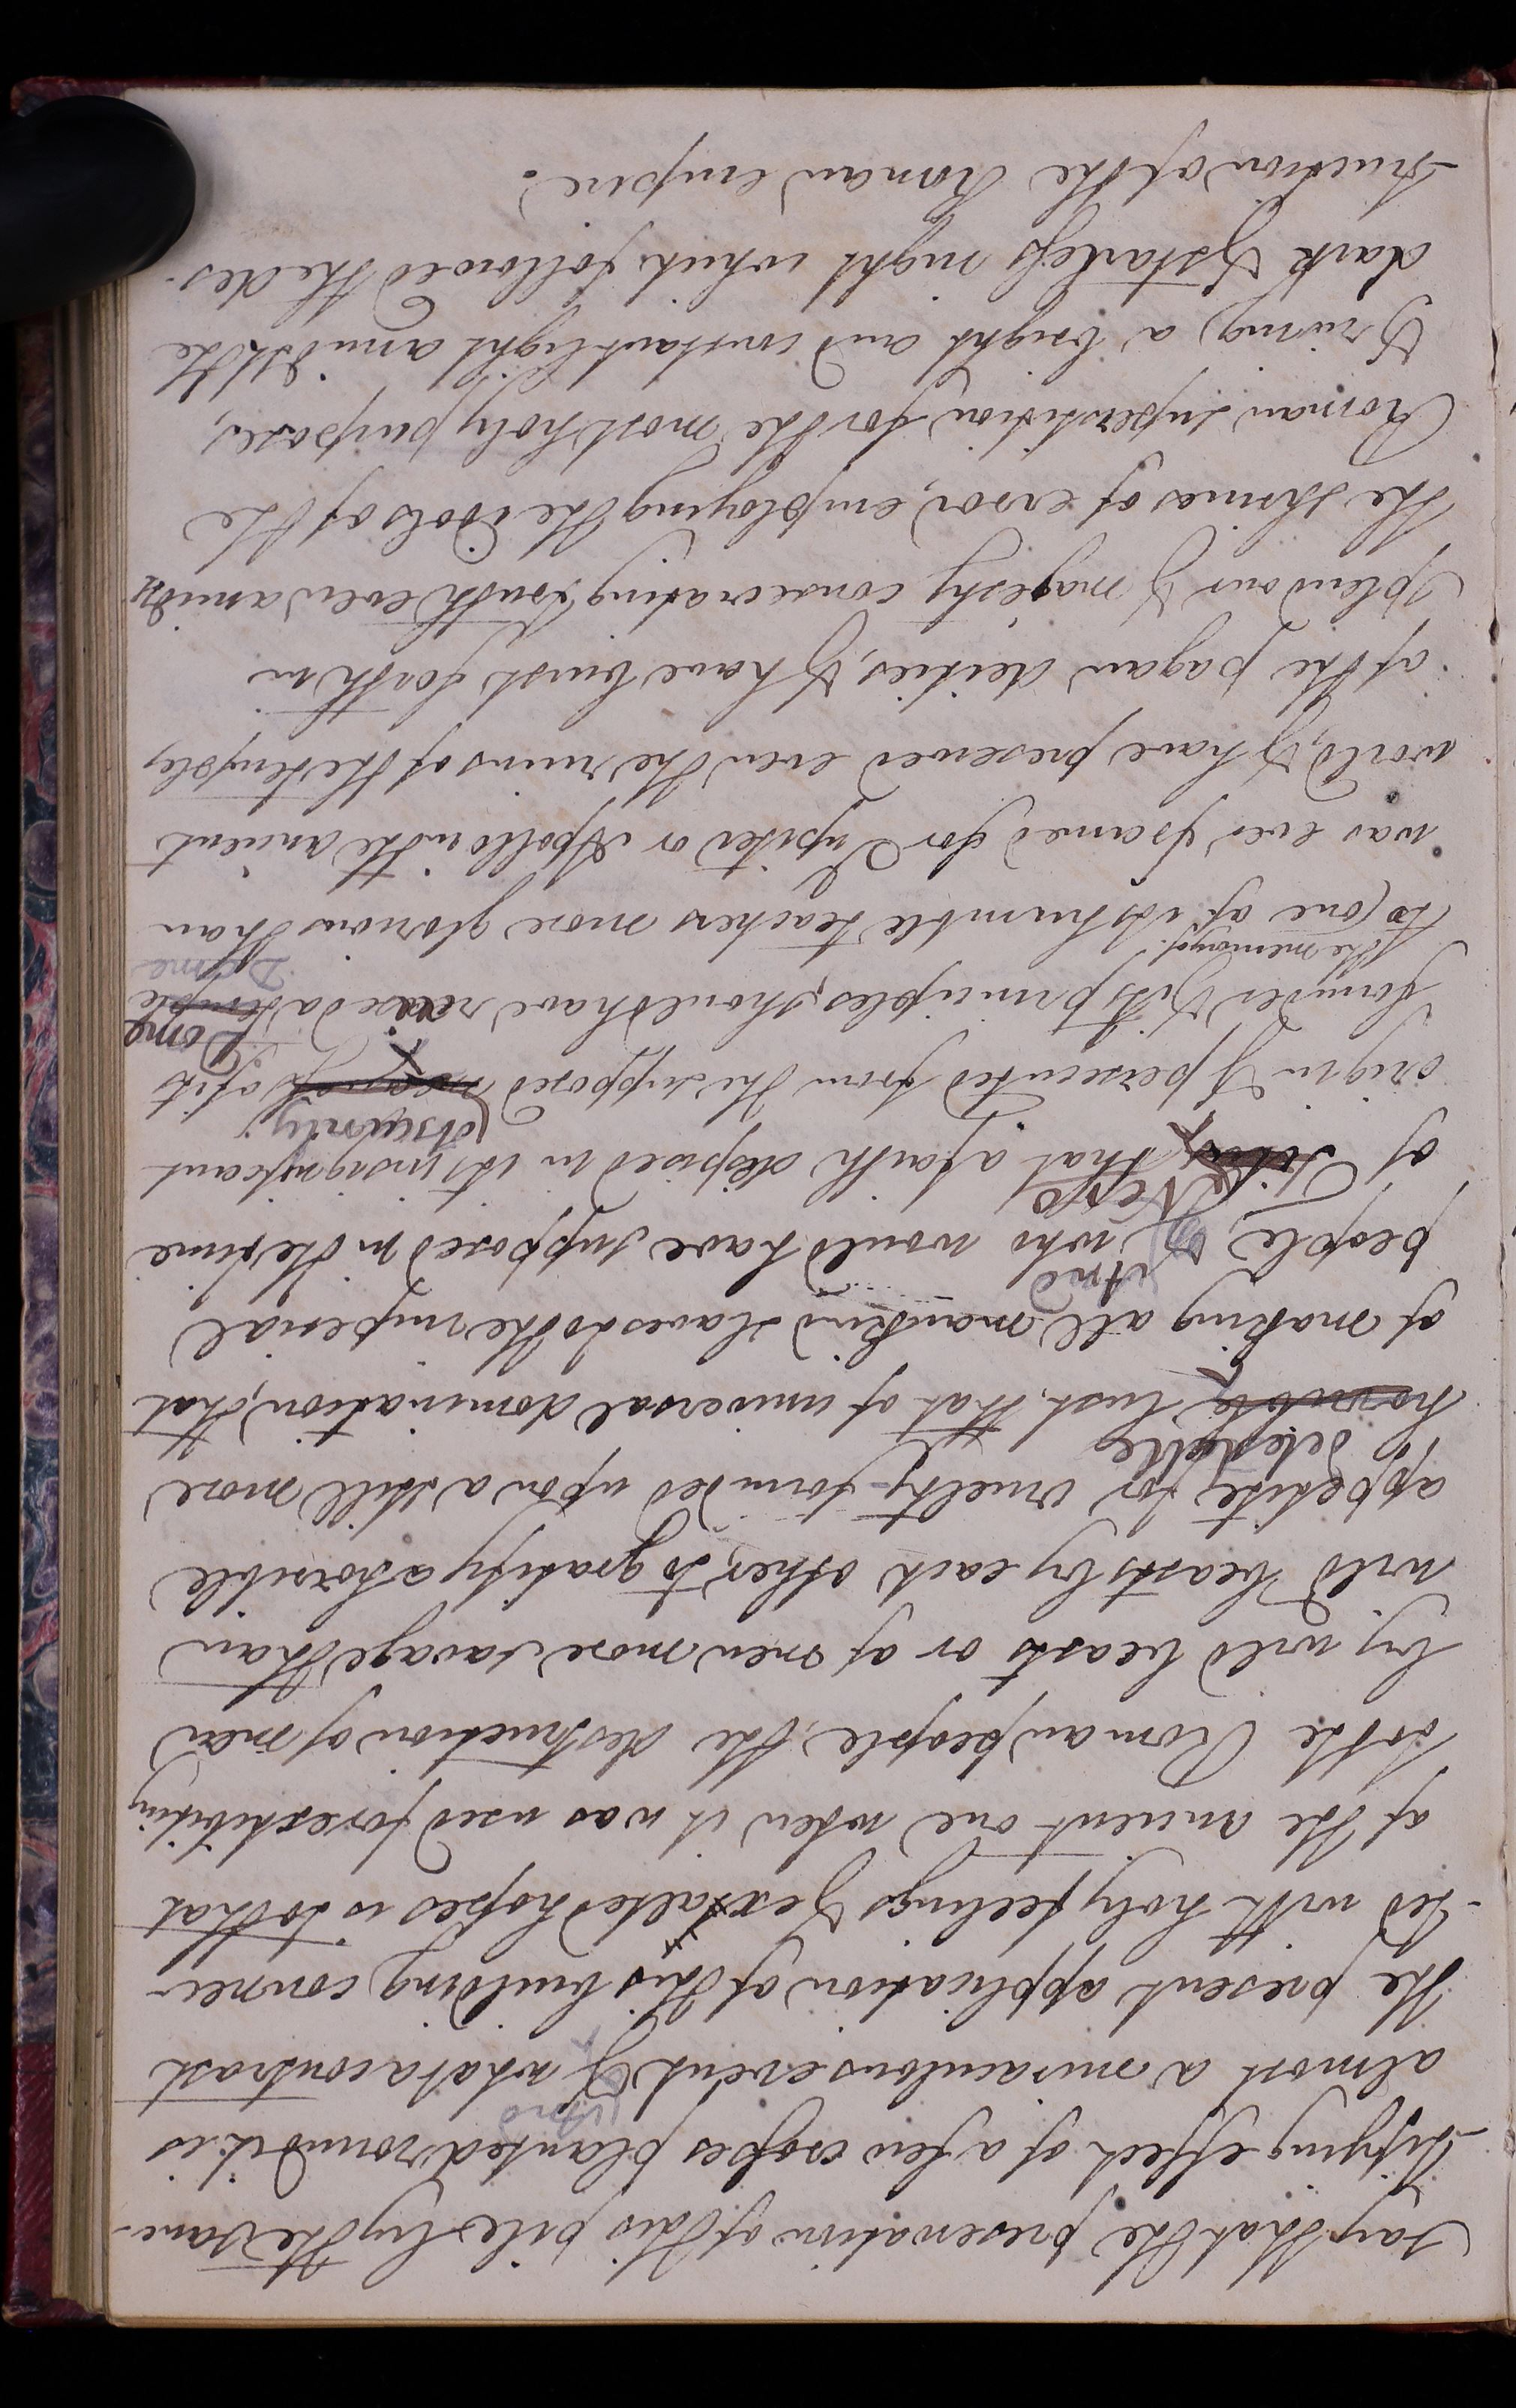 say that the preservation of this pile by the sanc-
-tifying effect of a few crosses planted round it is
almost a miraculous event & what a contrast
And
the present application of this building connec-
-ted with holy feelings & exalted hopes is to that
of the ancient one when it was used for exhibiting
to the Roman people, the destruction of men
by wild beasts or of men more savage than
wild beasts by each other, to gratify a horrible
appetite for cruelty founded upon a still more
detestable
horrible lust, that of universal domination, that
of making all mankind slaves to the imperial
And
people, & who would have supposed in the time
Nero
of Titus, that a faith despised in its insignificant
obscurity
origin & persecuted from the supposed of its
Dome
founder & its principles, should have raised a temple
Dome
the memory of
to one of its humble teachers more glorious than
was ever framed for Jupiter or Apollo in the ancient
world, & have preserved even the ruins of the temples
of the pagan deities, & have burst forth in
splendour & majesty consecrating truth even amidst
the shrines of error, employing the idols of the
Roman superstition for the most holy purposes,
& rising a bright and constant light amidst the
dark & starless night which followed the des-
-truction of the Roman empire.